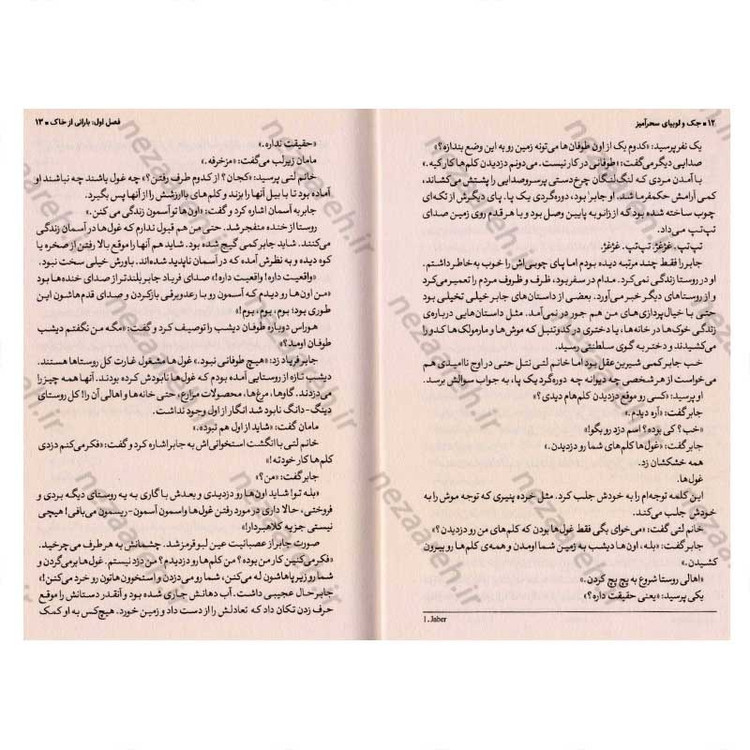 ۱۲ • جک و لوبیای سحرآمیز
یک نفر پرسید: «کدوم یک از اون طوفان‌ها می‌تونه زمین رو به این وضع بندازه؟»
صدایی دیگر می‌گفت: «طوفانی در کار نیست. می‌دونم دزدیدن کلم‌ها کار کیه.»
با آمدن مردی که لنگ‌لنگان چرخ‌دستی پرسروصدایی را پشتش می‌کشاند،
کمی آرامش حکمفرما شد. او جابر بود، دوره‌گردی یک پا. پای دیگرش از تکه‌ای
چوب ساخته شده بود که از زانو به پایین وصل بود و با هر قدم روی زمین صدای
تپ‌تپ می‌داد.
تپ‌تپ. غژغژ. تپ‌تپ. غژغژ.
جابر را فقط چند مرتبه دیده بودم اما پای چوبی‌اش را خوب به‌خاطر داشتم.
او در روستا زندگی نمی‌کرد. مدام در سفر بود، ظرف و ظروف مردم را تعمیر می‌کرد
و از روستاهای دیگر خبر می‌آورد. بعضی از داستان‌های جابر خیلی تخیلی بود
حتی با خیال‌پردازی‌های من هم جور در نمی‌آمد. مثل داستان‌هایی درباره‌ی
زندگی خوک‌ها در خانه‌ها، یا دختری در کدو تنبل که موش‌ها و مارمولک‌ها کدو را
می‌کشیدند و دختر به گوی سلطنتی رسید.
خب جابر کمی شیرین عقل بود اما خانم لتی نتل حتی در اوج ناامیدی هم
می‌خواست از هر شخصی چه دیوانه چه دوره‌گرد یک پا، به جواب سوالش برسد.
او پرسید: «کسی رو موقع دزدیدن کلم‌هام دیدی؟»
جابر گفت: «آره دیدم.»
«خب؟ کی بوده؟ اسم دزد رو بگو!»
جابر گفت: «غول‌ها کلم‌های شما رو دزدیدن.»
همه خشکشان زد.
غول‌ها.
این کلمه توجه‌ام را به خودش جلب کرد. مثل خرده پنیری که توجه موش را به
خودش جلب می‌کند.
خانم لتی گفت: «می‌خوای بگی فقط غول‌ها بودن که کلم‌های من رو دزدیدن؟»
جابر گفت: «بله، اون‌ها دیشب به زمین شما اومدن و همه‌ی کلم‌ها رو بیرون
کشیدن.»
«اهالی روستا شروع به پچ پچ کردن.»
یکی پرسید: «یعنی حقیقت داره؟»
1. Jaber
فصل اول: بارانی از خاک • ۱۳
«حقیقت نداره.»
مامان زیرلب می‌گفت: «مزخرفه.»
خانم لتی پرسید: «کجان؟ از کدوم طرف رفتن؟» چه غول باشند چه نباشند او
آماده بود تا با بیل آنها را بزند و کلم‌های باارزشش را از آنها پس بگیرد.
جابر به آسمان اشاره کرد و گفت: «اون‌ها تو آسمون زندگی می کنن.»
روستا از خنده منفجر شد. حتی من هم قبول ندارم که غول‌ها در آسمان زندگی
می‌کنند. شاید جابر کمی گیج شده بود. شاید هم آنها را موقع بالا رفتن از صخره یا
کوه دیده و به نظرش آمده که در آسمان ناپدید شده‌اند. باورش خیلی سخت نبود.
«واقعیت داره! واقعیت داره!» صدای فریاد جابر بلندتر از صدای خنده‌ها بود
«من اون‌ها رو دیدم که آسمون رو با رعدوبرقی باز کردن و صدای قدم‌هاشون این
طوری بود: بوم، بوم، بوم!»
هوراس دوباره طوفان دیشب را توصیف کرد و گفت: «مگه من نگفتم دیشب
طوفان اومد؟»
جابر فریاد زد: «هیچ طوفانی نبود.» غول‌ها مشغول غارت کل روستاها هستند.
دیشب تازه از روستایی آمده بودم که غول‌ها نابودش کرده بودند. آنها همه چیز را
می‌دزدند. گاوها، مرغ‌ها، محصولات مزارع، حتی خانه‌ها و اهالی آن را! کل روستای
دینگ- دانگ نابود شد انگار از اول وجود نداشت.
مامان گفت: «شاید از اول هم نبوده.»
خانم لتی با انگشت استخوانی‌اش به جابر اشاره کرد و گفت: «فکر می‌کنم دزدی
کلم‌ها کار خودته!»
جابر گفت: «من؟»
«بله تو! شاید اون‌ها رو دزدیدی و بعدش با گاری به یه روستای دیگه بردی و
فروختی، حالا داری در مورد رفتن غول‌ها واسمون آسمون - ریسمون می‌بافی! هیچی
نیستی جز یه کلاهبردار!»
صورت جابر از عصبانیت عین لبو قرمز شد. چشمانش به هر طرف می‌چرخید.
«فکر می‌کنین کار من بوده؟ من کلم‌ها رو دزدیدم؟ من دزد نیستم. غول‌ها برمی‌گردن و
شما رو زیر پاهاشون له می‌کنن، شما رو می‌دزدن و استخوون‌هاتون رو خرد می‌کنن!»
جابر حال عجیبی داشت. آب دهانش جاری شده بود و آنقدر دستانش را موقع
حرف زدن تکان داد که تعادلش را از دست داد و زمین خورد. هیچ‌کس به او کمک
nezaareh.ir